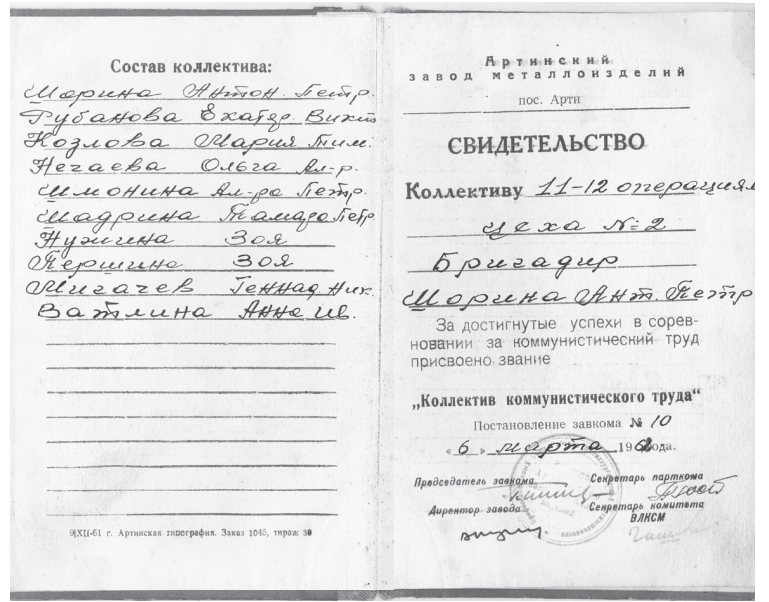 Состав коллектива:
Шорина Антон. Петр.
Рубанова Екатер. Викт
Козлова Мария Тим.
Нечаева Ольга Ал-р.
Шмонина Ал-ра Петр.
Шадрина Тамара Петр
Нужгина Зоя
Першина Зоя
Мигачев Геннад Ник.
Ватлина Анна Ив.
9/XII-61 г. Артинская типография. Заказ 1045, тираж 30
Артинский
завод металлоизделий
пос. Арти
СВИДЕТЕЛЬСТВО
Коллективу 11-12 операциям
цеха №2
Бригадир
Шорина Ант. Петр
За достигнутые успехи в сорев-
новании за коммунистический труд
присвоено звание
„Коллектив коммунистического труда“
Постановление завкома № 10
«6» марта 1962 года.
Председатель завкома Секретарь парткома
Директор завода Секретарь комитета
ВЛКСМ